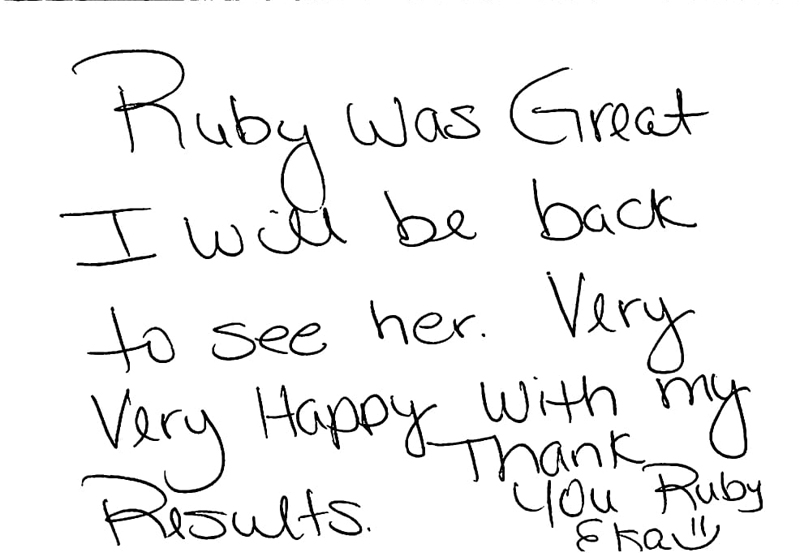 Ruby was Great
I will be back
to see her. Very
Very Happy with my
Results.
Thank
you Ruby
Eka